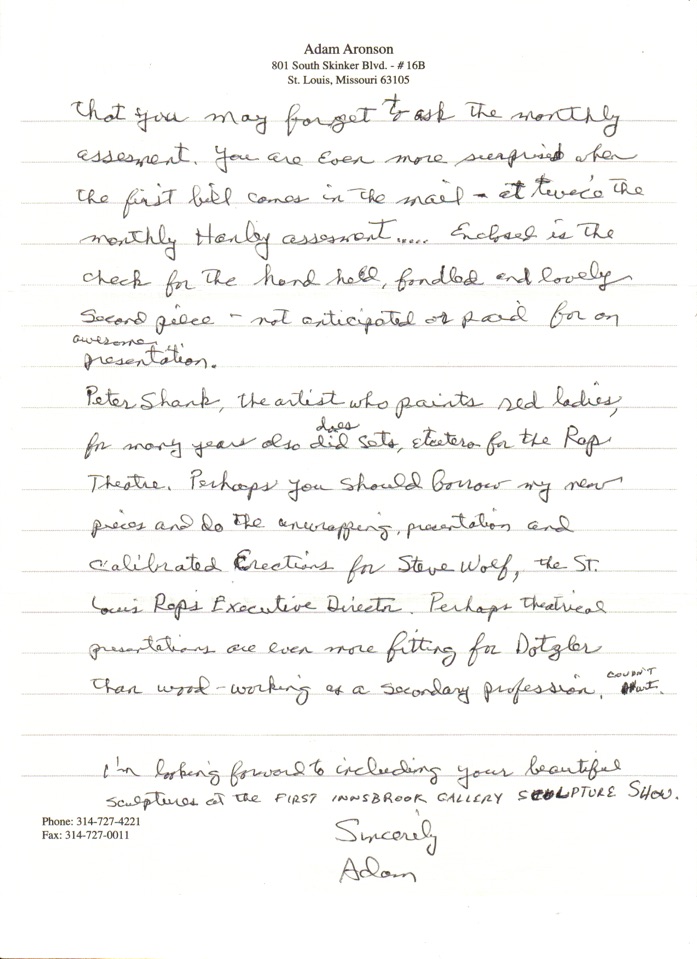 Adam Aronson
801 South Skinker Blvd. - # 16B
St. Louis, Missouri 63105
that you may forget to ask the monthly
assesment. You are even more surprised when
the first bill comes in the mail - at twice the
monthly Hanley assesment..... Enclosed is the
check for the hand held, fondled and lovely
second piece - not anticipated or paid for on
awesome
presentation.
Peter Shank, the artist who paints red ladies,
does
for many years also did sets, etcetera for the Rep
Theatre. Perhaps you should borrow my new
pieces and do the unwrapping, presentation and
calibrated Erections for Steve Wolf, the St.
Louis Rep's Executive Director. Perhaps theatrical
presentations are even more fitting for Dotzler
than wood-working as a secondary profession.
COUDN'T
I'm looking forward to including your beautiful
sculptures at the FIRST INNSBROOK GALLERY SCULPTURE SHOW.
Phone: 314-727-4221
Fax: 314-727-0011
Sincerily
Adam